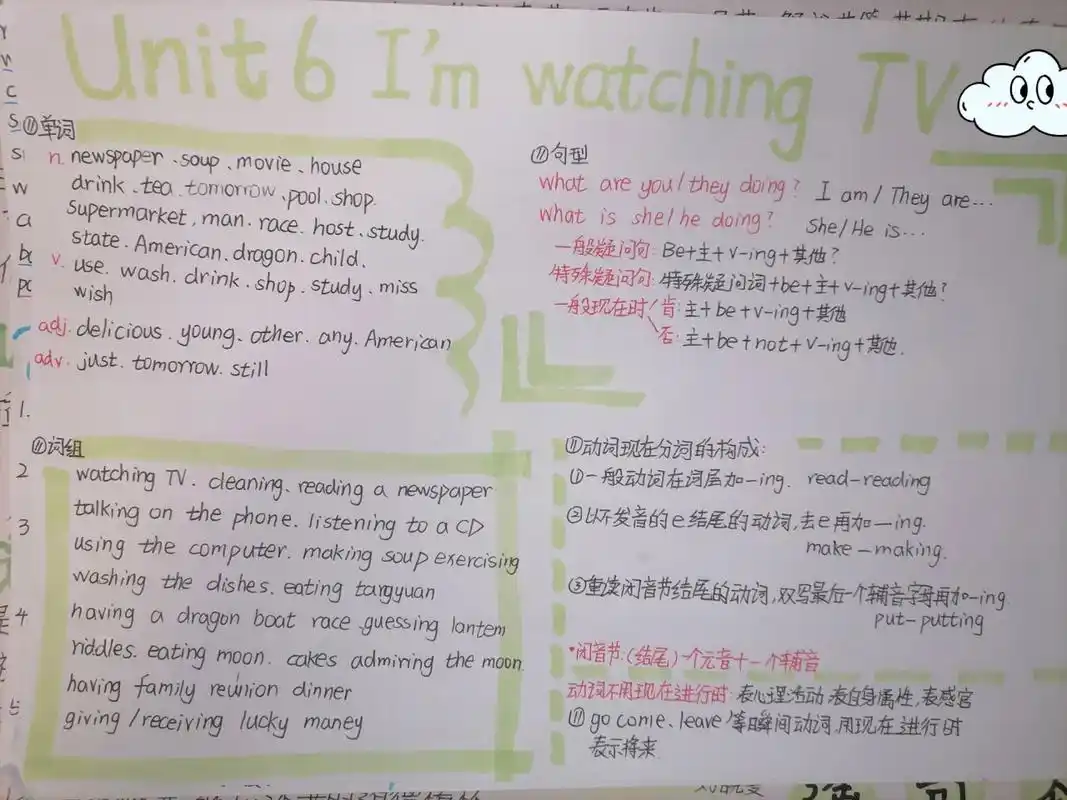 Unit 6 I'm watching TV
单词
n. newspaper、soup、movie、house
drink、tea、tomorrow、pool、shop.
supermarket、man、race、host、study.
state、American、dragon、child、
v. use、wash、drink、shop、study、miss
wish
adj. delicious、young、other、any、American
adv. just、tomorrow、still
词组
watching TV、cleaning、reading a newspaper
talking on the phone、listening to a CD
using the computer、making soup exercising
washing the dishes、eating targyuan
having a dragon boat race guessing lantem
riddles、eating moon、cakes admiring the moon
having family reunion dinner
giving/receiving lucky maney
句型
what are you/they doing? I am/They are...
what is she/he doing? She/He is...
一般疑问句: Be+主+v-ing+其他?
特殊疑问句: 特殊疑问词+be+主+v-ing+其他?
一般现在时 肯: 主+be+v-ing+其他
否: 主+be+not+v-ing+其他.
动词现在分词的构成:
①一般动词在词尾加-ing. read-reading
②以不发音的e结尾的动词,去e再加-ing.
make-making.
③重读闭音节结尾的动词,双写最后一个辅音字母再加-ing.
put-putting
*闭音节:(结尾)一个元音+一个辅音
动词不用现在进行时: 表心理活动 表自身属性,表感官
go come、leave 等瞬间动词,用现在进行时
表示将来